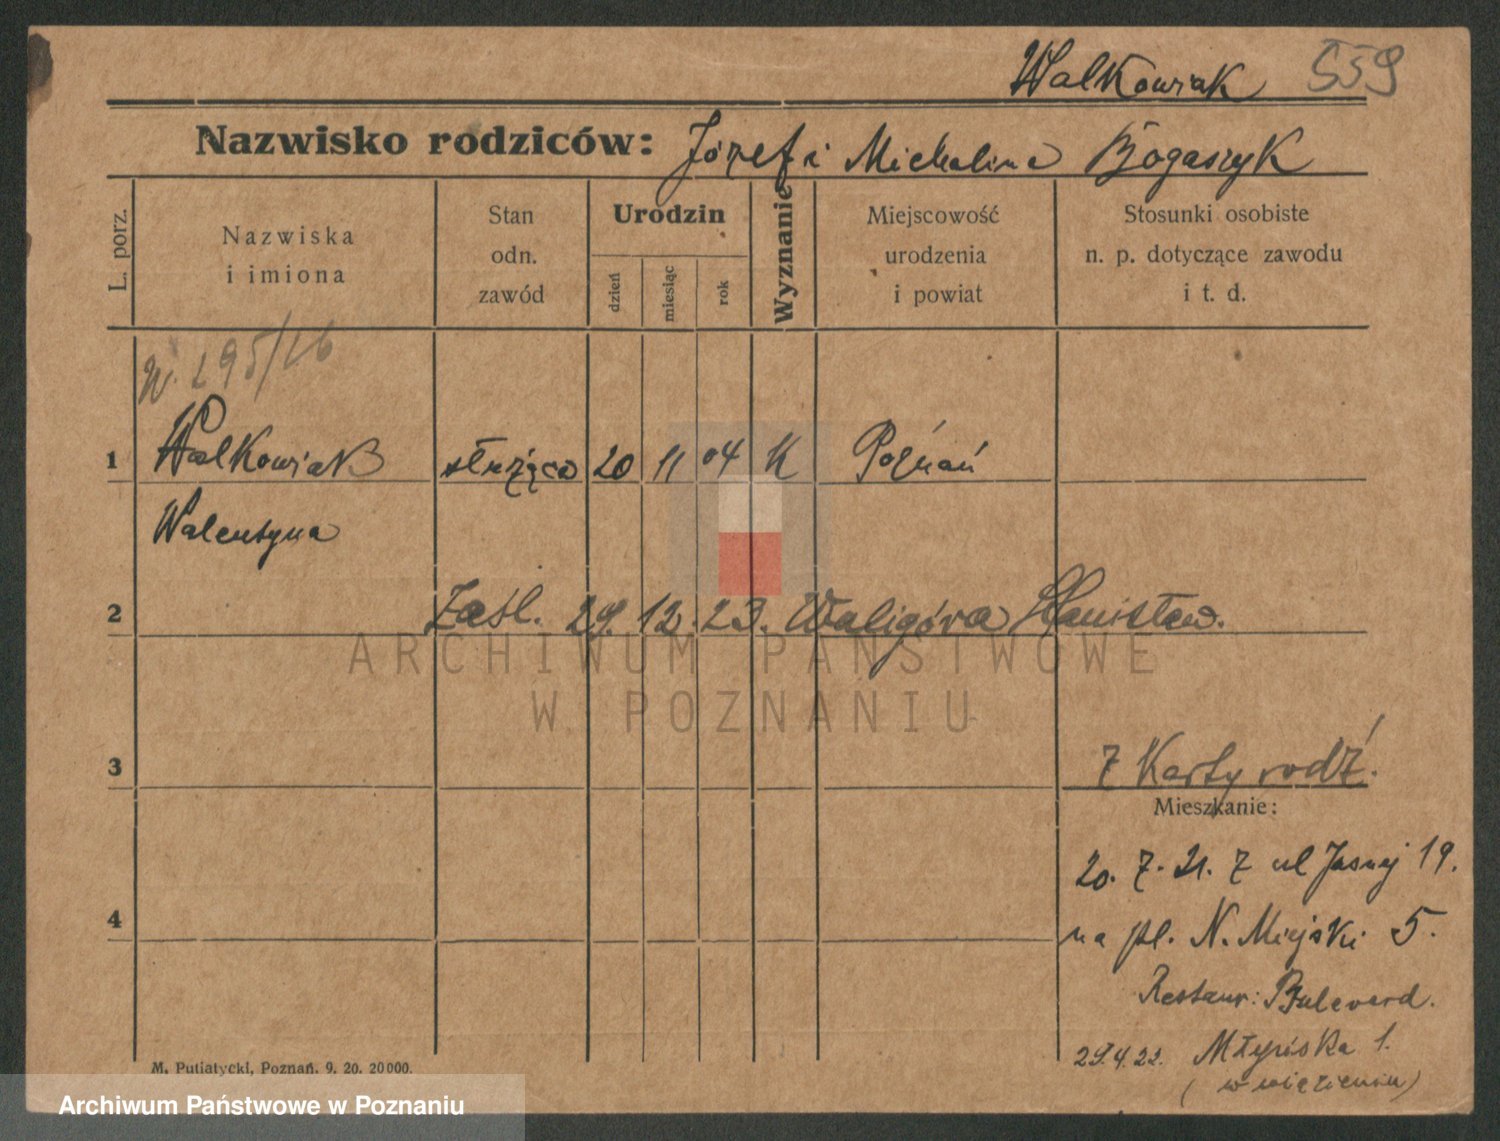 Walkowiak 559
Nazwisko rodziców: Józef i Michalina Bogaszyk
L. porz.
Nazwiska
i imiona
Stan
odn.
zawód
Urodzin
dzień
miesiąc
rok
Wyznanie
Miejscowość
urodzenia
i powiat
Stosunki osobiste
n. p. dotyczące zawodu
i t. d.
N. 295/26
1 Walkowiak służąca 20 11 04 K Poznań
Walentyna
2 Zaśl. 29. 12. 23. Waligóra Stanisław.
ARCHIWUM PAŃSTWOWE
W POZNANIU
3 z Karty rodź.
Mieszkanie:
20. 7. 21. z ul Jasnej 19.
4 na pl. N. Miejski 5.
Restaur: Bulevard.
29.4.22. Młyńska 1.
(w więzieniu)
M. Putiatycki, Poznań. 9. 20. 20000.
Archiwum Państwowe w Poznaniu